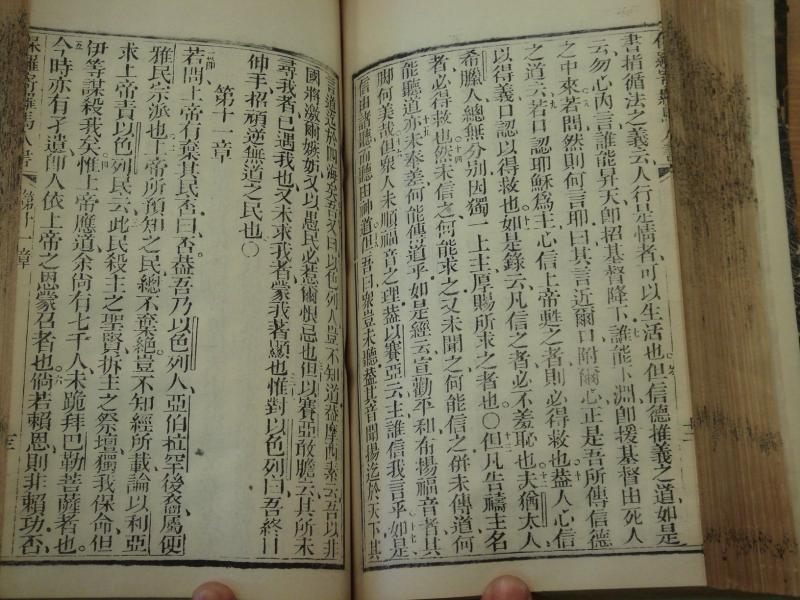 書指循法之義云人行是情者可以生活也但信德推義之道如是
云勿心內言誰能昇天卽招基督降下誰能下淵卽援基督由死人
之中來若問然則何言耶曰其言近爾口附爾心正是吾所傳信德
之道云若口認耶穌為主心信上帝甦之者則必得救也葢人心信
以得義口認以得救也如是錄云凡信之者必不羞恥也夫猶太人
希臘人總無分別因獨一上主厚賜所求之者也〇但凡告禱主名
者必得救也然未信之何能求之又未聞之何能信之併未傳道何
能聽道亦未奉差何能傳道乎如是經云宣勸平和布揚福音者其
脚何美哉但衆人未順福音之理葢以賽亞云主誰信我言乎如是
信由諸聽而聽由神道但吾曰衆豈未聽葢其音聞揚迄於天下其
言道迄於四海矣吾又曰以色列人豈不知道葢摩西素云吾以非
國將激爾嫉妬又以愚民必惹爾恨忌也但以賽亞敢膽云其所未
尋我者已遇我也又未求我者蒙我著顯也惟對以色列曰吾終日
伸手招頑逆無道之民也〇
第十一章
一節
若問上帝有棄其民否曰否葢吾乃以色列人亞伯拉罕後裔屬便
雅民宗派也上帝所預知之民總不棄絕豈不知經所載論以利亞
求上帝責以色列民云此民殺主之聖賢拆主之祭壇獨我保命但
伊等謀殺我矣惟上帝應道余尚有七千人未跪拜巴勒菩薩者也
今時亦有孑遺卽人依上帝之恩蒙召者也倘若賴恩則非賴功否
保羅寄羅馬人書 第十一章